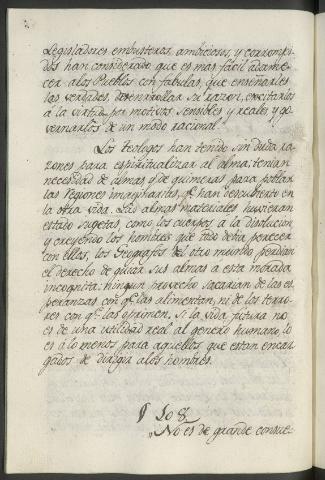 Legisladores embusteros, ambiciosos, y corrompi-
dos han considerado que es mas facil adorme-
cer alos Pueblos con fabulas, que enseñarles
las verdades, desenrrollar su razon, excitarlos
à la virtud por motivos sensibles y reales, y go-
vernarlos de un modo racional.
Los Teologos han tenido sin duda ra-
zones para espiritualizar al alma, tenian
necesidad de almas y de quimeras para poblar
las regiones imaginarias, qe. han descubierto en
la otra vida. Las almas materiales huvieran
estado sugetas, como los cuerpos, à la disolucion
y creyendo los hombres que todo devia perecer
con ellos, los Geografos del otro mundo perdian
el derecho de guiar sus almas a esta morada
incognita: ningun provecho sacarian de las es-
peranzas con qe. las alimentan, ni de los terro-
res con qe. las oprimen. Si la vida futura no
es de una utilidad real al genero humano, lo
es à lo menos para aquellos que estan encar-
gados de dirigir alos hombres.
§ 108
"No es de grande consue-